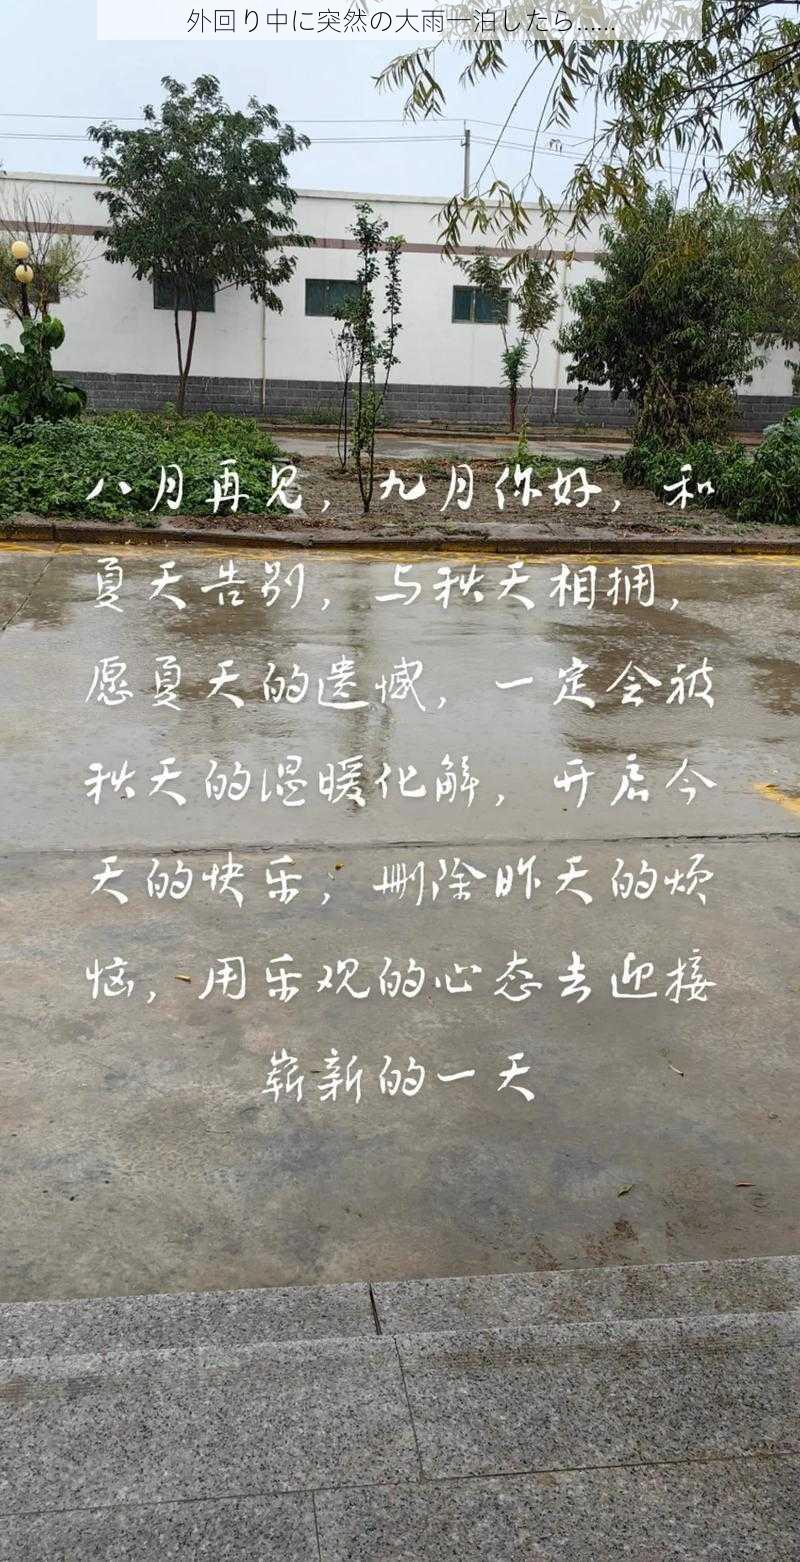 外回り中に突然の大雨一泊したら……
八月再见，九月你好，和
夏天告别，与秋天相拥，
愿夏天的遗憾，一定会被
秋天的温暖化解，开启今
天的快乐，删除昨天的烦
恼，用乐观的心态去迎接
崭新的一天